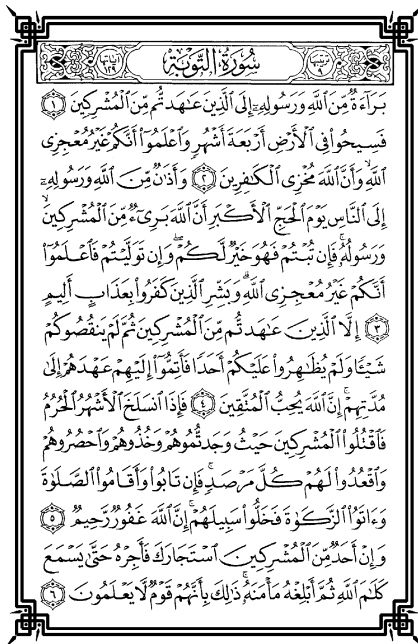 ترتيبها ٩ سُورَةُ التَّوْبَةِ آياتها ١٢٩
بَرَآءَةٌ مِّنَ ٱللَّهِ وَرَسُولِهِۦٓ إِلَى ٱلَّذِينَ عَٰهَدتُّم مِّنَ ٱلْمُشْرِكِينَ ١
فَسِيحُوا۟ فِى ٱلْأَرْضِ أَرْبَعَةَ أَشْهُرٍ وَٱعْلَمُوٓا۟ أَنَّكُمْ غَيْرُ مُعْجِزِى
ٱللَّهِ ۙ وَأَنَّ ٱللَّهَ مُخْزِى ٱلْكَٰفِرِينَ ٢ وَأَذَٰنٌ مِّنَ ٱللَّهِ وَرَسُولِهِۦٓ
إِلَى ٱلنَّاسِ يَوْمَ ٱلْحَجِّ ٱلْأَكْبَرِ أَنَّ ٱللَّهَ بَرِىٓءٌ مِّنَ ٱلْمُشْرِكِينَ ۙ
وَرَسُولُهُۥ ۚ فَإِن تُبْتُمْ فَهُوَ خَيْرٌ لَّكُمْ ۖ وَإِن تَوَلَّيْتُمْ فَٱعْلَمُوٓا۟
أَنَّكُمْ غَيْرُ مُعْجِزِى ٱللَّهِ ۗ وَبَشِّرِ ٱلَّذِينَ كَفَرُوا۟ بِعَذَابٍ أَلِيمٍ
٣ إِلَّا ٱلَّذِينَ عَٰهَدتُّم مِّنَ ٱلْمُشْرِكِينَ ثُمَّ لَمْ يَنقُصُوكُمْ
شَيْـًٔا وَلَمْ يُظَٰهِرُوا۟ عَلَيْكُمْ أَحَدًا فَأَتِمُّوٓا۟ إِلَيْهِمْ عَهْدَهُمْ إِلَىٰ
مُدَّتِهِمْ ۚ إِنَّ ٱللَّهَ يُحِبُّ ٱلْمُتَّقِينَ ٤ فَإِذَا ٱنسَلَخَ ٱلْأَشْهُرُ ٱلْحُرُمُ
فَٱقْتُلُوا۟ ٱلْمُشْرِكِينَ حَيْثُ وَجَدتُّمُوهُمْ وَخُذُوهُمْ وَٱحْصُرُوهُمْ
وَٱقْعُدُوا۟ لَهُمْ كُلَّ مَرْصَدٍ ۚ فَإِن تَابُوا۟ وَأَقَامُوا۟ ٱلصَّلَوٰةَ
وَءَاتَوُا۟ ٱلزَّكَوٰةَ فَخَلُّوا۟ سَبِيلَهُمْ ۚ إِنَّ ٱللَّهَ غَفُورٌ رَّحِيمٌ ٥
وَإِنْ أَحَدٌ مِّنَ ٱلْمُشْرِكِينَ ٱسْتَجَارَكَ فَأَجِرْهُ حَتَّىٰ يَسْمَعَ
كَلَٰمَ ٱللَّهِ ثُمَّ أَبْلِغْهُ مَأْمَنَهُۥ ۚ ذَٰلِكَ بِأَنَّهُمْ قَوْمٌ لَّا يَعْلَمُونَ ٦